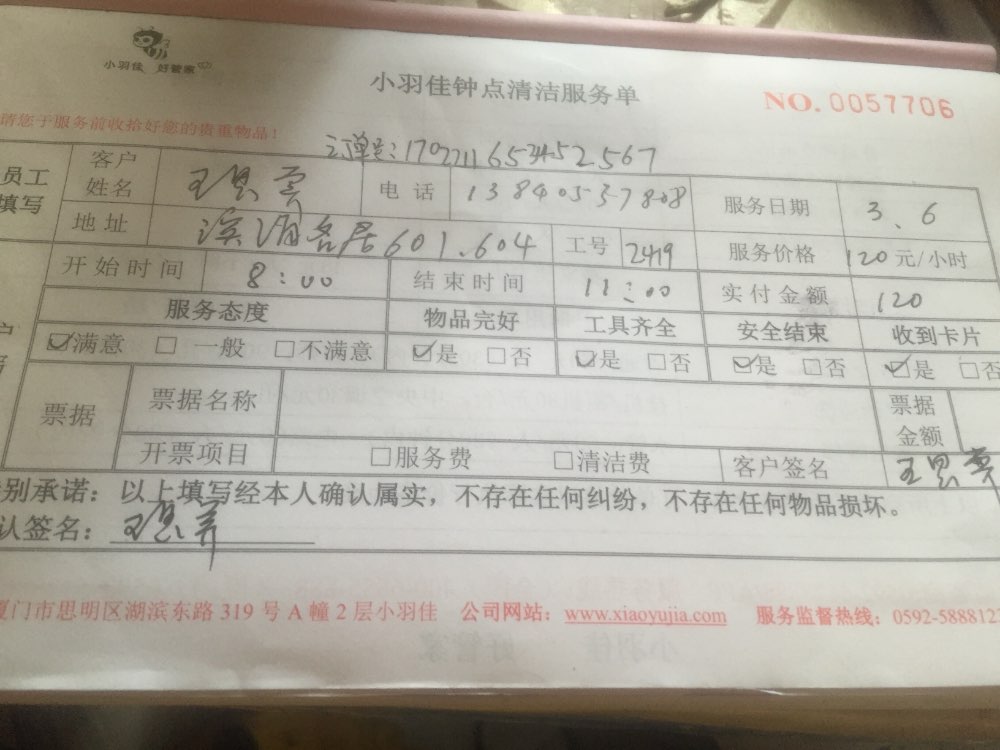 小羽佳 好管家
小羽佳钟点清洁服务单
NO. 0057706
请您于服务前收拾好您的贵重物品！
订单号：
员工填写 客户姓名 电话 13840537808 服务日期 3.6
地址 601.604 工号 2419 服务价格 120元/小时
开始时间 8：00 结束时间 11：00 实付金额 120
服务态度 物品完好 工具齐全 安全结束 收到卡片
☑满意 □一般 □不满意 ☑是 □否 ☑是 □否 ☑是 □否 ☑是 □否
票据 票据名称 票据金额
开票项目 □服务费 □清洁费 客户签名
别承诺：以上填写经本人确认属实，不存在任何纠纷，不存在任何物品损坏。
认签名：
厦门市思明区湖滨东路 319 号 A 幢 2 层小羽佳 公司网站：www.xiaoyujia.com 服务监督热线：0592-5888123